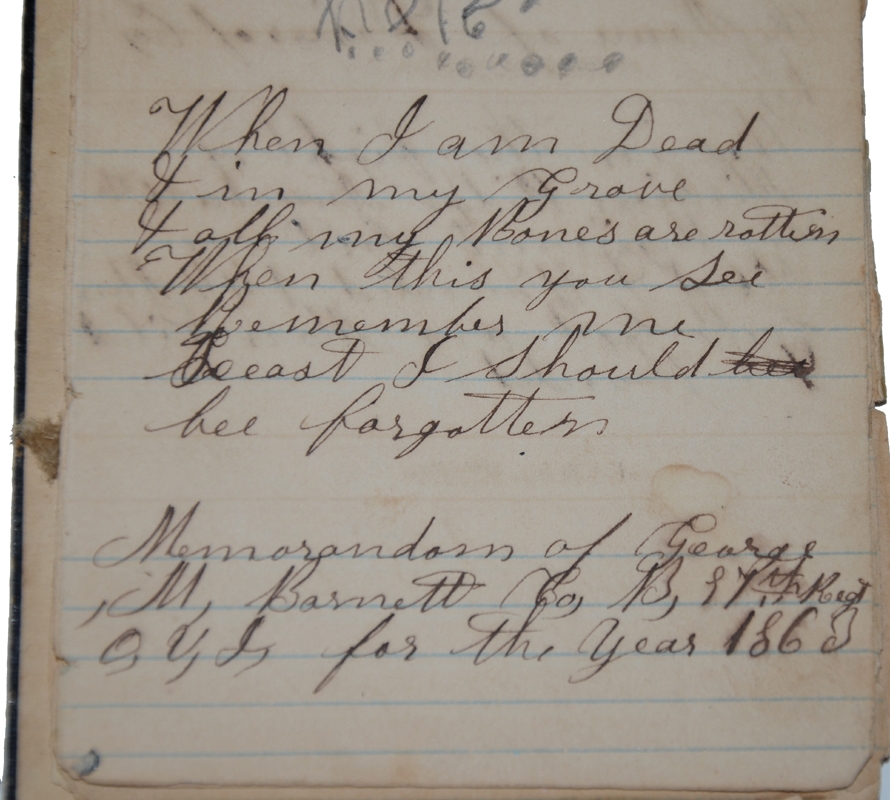 When I am Dead
& in my Grave
& all my Bones are rotten
When this you see
Remember me
Leeast I should
bee forgotten
Memorandom of George
, M, Barnett Co, B, 97th Regt
O, V, I, for the Year 1863